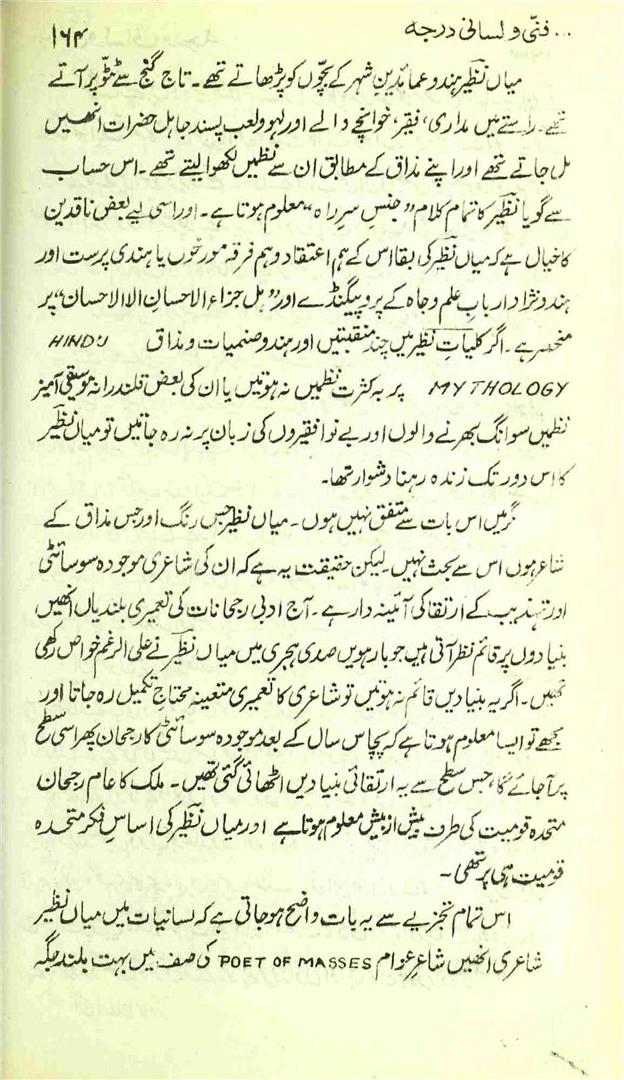 ... فنّی و لسانی درجہ
۱۶۴
میاں نظیرؔ ہندو عمائدینِ شہر کے بچّوں کو پڑھاتے تھے۔ تاج گنج سے ٹٹّو پر آتے
تھے۔ راستے میں مداری، فقیر، خوانچے والے اور لہو و لعب پسند جاہل حضرات انھیں
مل جاتے تھے اور اپنے مذاق کے مطابق ان سے نظمیں لکھوا لیتے تھے۔ اس حساب
سے گویا نظیرؔ کا تمام کلام ”جنسِ سرِ راہ“ معلوم ہوتا ہے۔ اور اسی لیے بعض ناقدین
کا خیال ہے کہ میاں نظیرؔ کی بقا اس کے ہم اعتقاد و ہم فرقہ مورخوں یا ہندی پرست اور
ہندو نژاد اربابِ علم و جاہ کے پروپیگنڈے اور ”ہل جزاء الاحسان الا الاحسان“ پر
منحصر ہے۔ اگر کلیاتِ نظیرؔ میں چند منقبتیں اور ہندو صنمیات و مذاق HINDU
MYTHOLOGY پر بہ کثرت نظمیں نہ ہوتیں یا ان کی بعض قلندرانہ موسیقی آمیز
نظمیں سوانگ بھرنے والوں اور بے نوا فقیروں کی زبان پر نہ رہ جاتیں تو میاں نظیرؔ
کا اس دور تک زندہ رہنا دشوار تھا۔
گر میں اس بات سے متفق نہیں ہوں۔ میاں نظیرؔ جس رنگ اور جس مذاق کے
شاعر ہوں اس سے بحث نہیں۔ لیکن حقیقت یہ ہے کہ ان کی شاعری موجودہ سوسائٹی
اور تہذیب کے ارتقا کی آئینہ دار ہے۔ آج ادبی رجحانات کی تعمیری بلندیاں انھیں
بنیادوں پر قائم نظر آتی ہیں جو بارہویں صدی ہجری میں میاں نظیرؔ نے علی الرغم خواص رکھی
تھیں۔ اگر یہ بنیادیں قائم نہ ہوتیں تو شاعری کا تعمیری متعینہ محتاجِ تکمیل رہ جاتا اور
مجھے تو ایسا معلوم ہوتا ہے کہ پچاس سال کے بعد موجودہ سوسائٹی کا رجحان پھر اسی سطح
پر آجائے گا، جس سطح سے یہ ارتقائی بنیادیں اٹھائی گئی تھیں۔ ملک کا عام رجحان
متحدہ قومیت کی طرف بیش از بیش معلوم ہوتا ہے اور میاں نظیرؔ کی اساسِ فکر متحدہ
قومیت ہی پر تھی۔
اس تمام تجزیے سے یہ بات واضح ہو جاتی ہے کہ لسانیات میں میاں نظیر
شاعری انھیں شاعرِ عوام POET OF MASSES کی صف میں بہت بلند جگہ